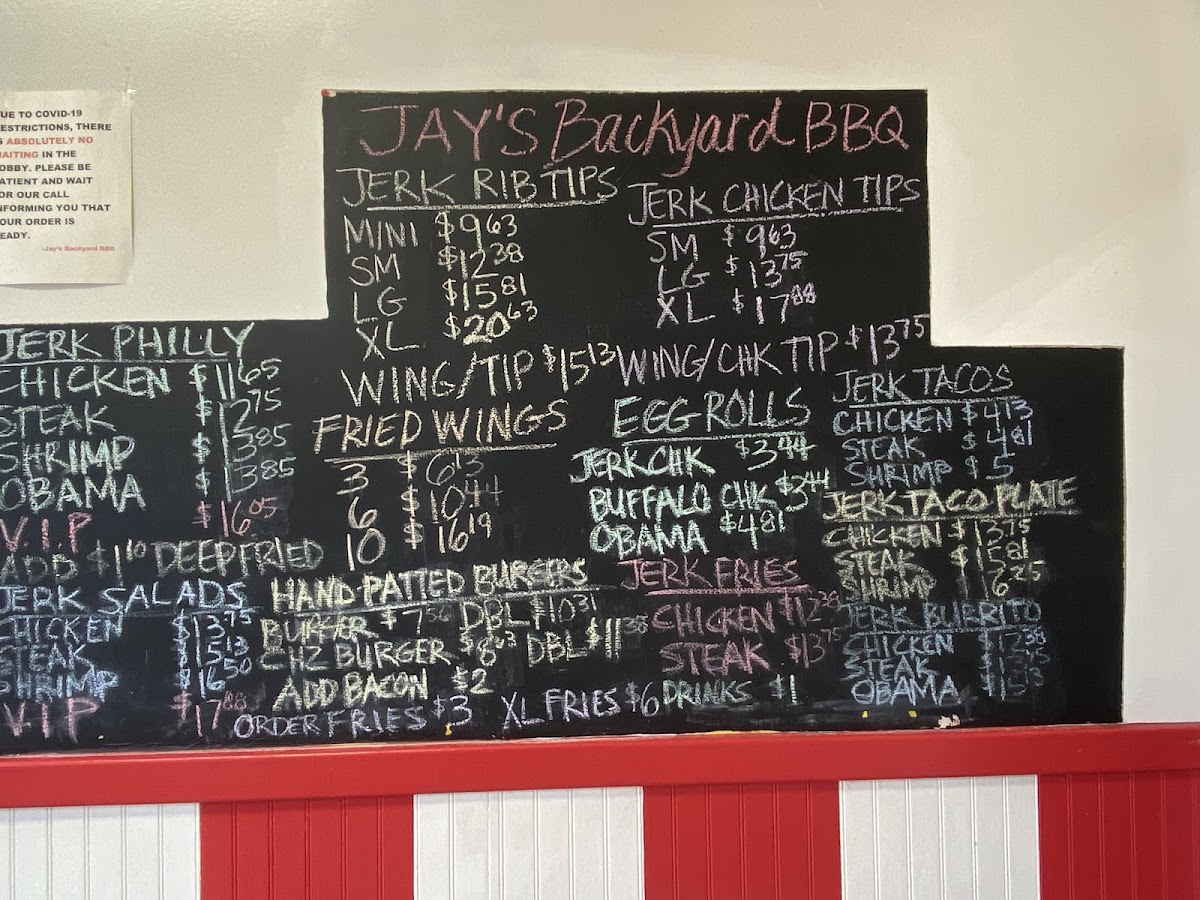 UE TO COVID-19
ESTRICTIONS, THERE
S ABSOLUTELY NO
AITING IN THE
OBBY. PLEASE BE
ATIENT AND WAIT
OR OUR CALL
NFORMING YOU THAT
OUR ORDER IS
EADY.
-Jay's Backyard BBQ
JAY'S Backyard BBQ
JERK RIB TIPS
MINI $9.63
SM $12.38
LG $15.81
XL $20.63
WING/TIP $15.13
JERK CHICKEN TIPS
SM $9.63
LG $13.75
XL $17.88
WING/CHK TIP $13.75
JERK PHILLY
CHICKEN $11.65
STEAK $12.75
SHRIMP $13.85
OBAMA $13.85
V.I.P $16.05
ADD $1.10 DEEP FRIED
FRIED WINGS
3 $6.13
6 $10.44
10 $16.19
EGG ROLLS
JERK CHK $3.44
BUFFALO CHK $3.44
OBAMA $4.81
JERK TACOS
CHICKEN $4.13
STEAK $4.81
SHRIMP $5
JERK TACO PLATE
CHICKEN $13.75
STEAK $15.81
SHRIMP $16.25
JERK SALADS
CHICKEN $13.75
STEAK $15.13
SHRIMP $16.50
V.I.P $17.88
HAND-PATTED BURGERS
BURGER $7.56 DBL $10.31
CHZ BURGER $8.63 DBL $11.38
ADD BACON $2
ORDER FRIES $3 XL FRIES $6
JERK FRIES
CHICKEN $12.38
STEAK $13.75
DRINKS $1
JERK BURRITO
CHICKEN $12.38
STEAK $13.75
OBAMA $15.13